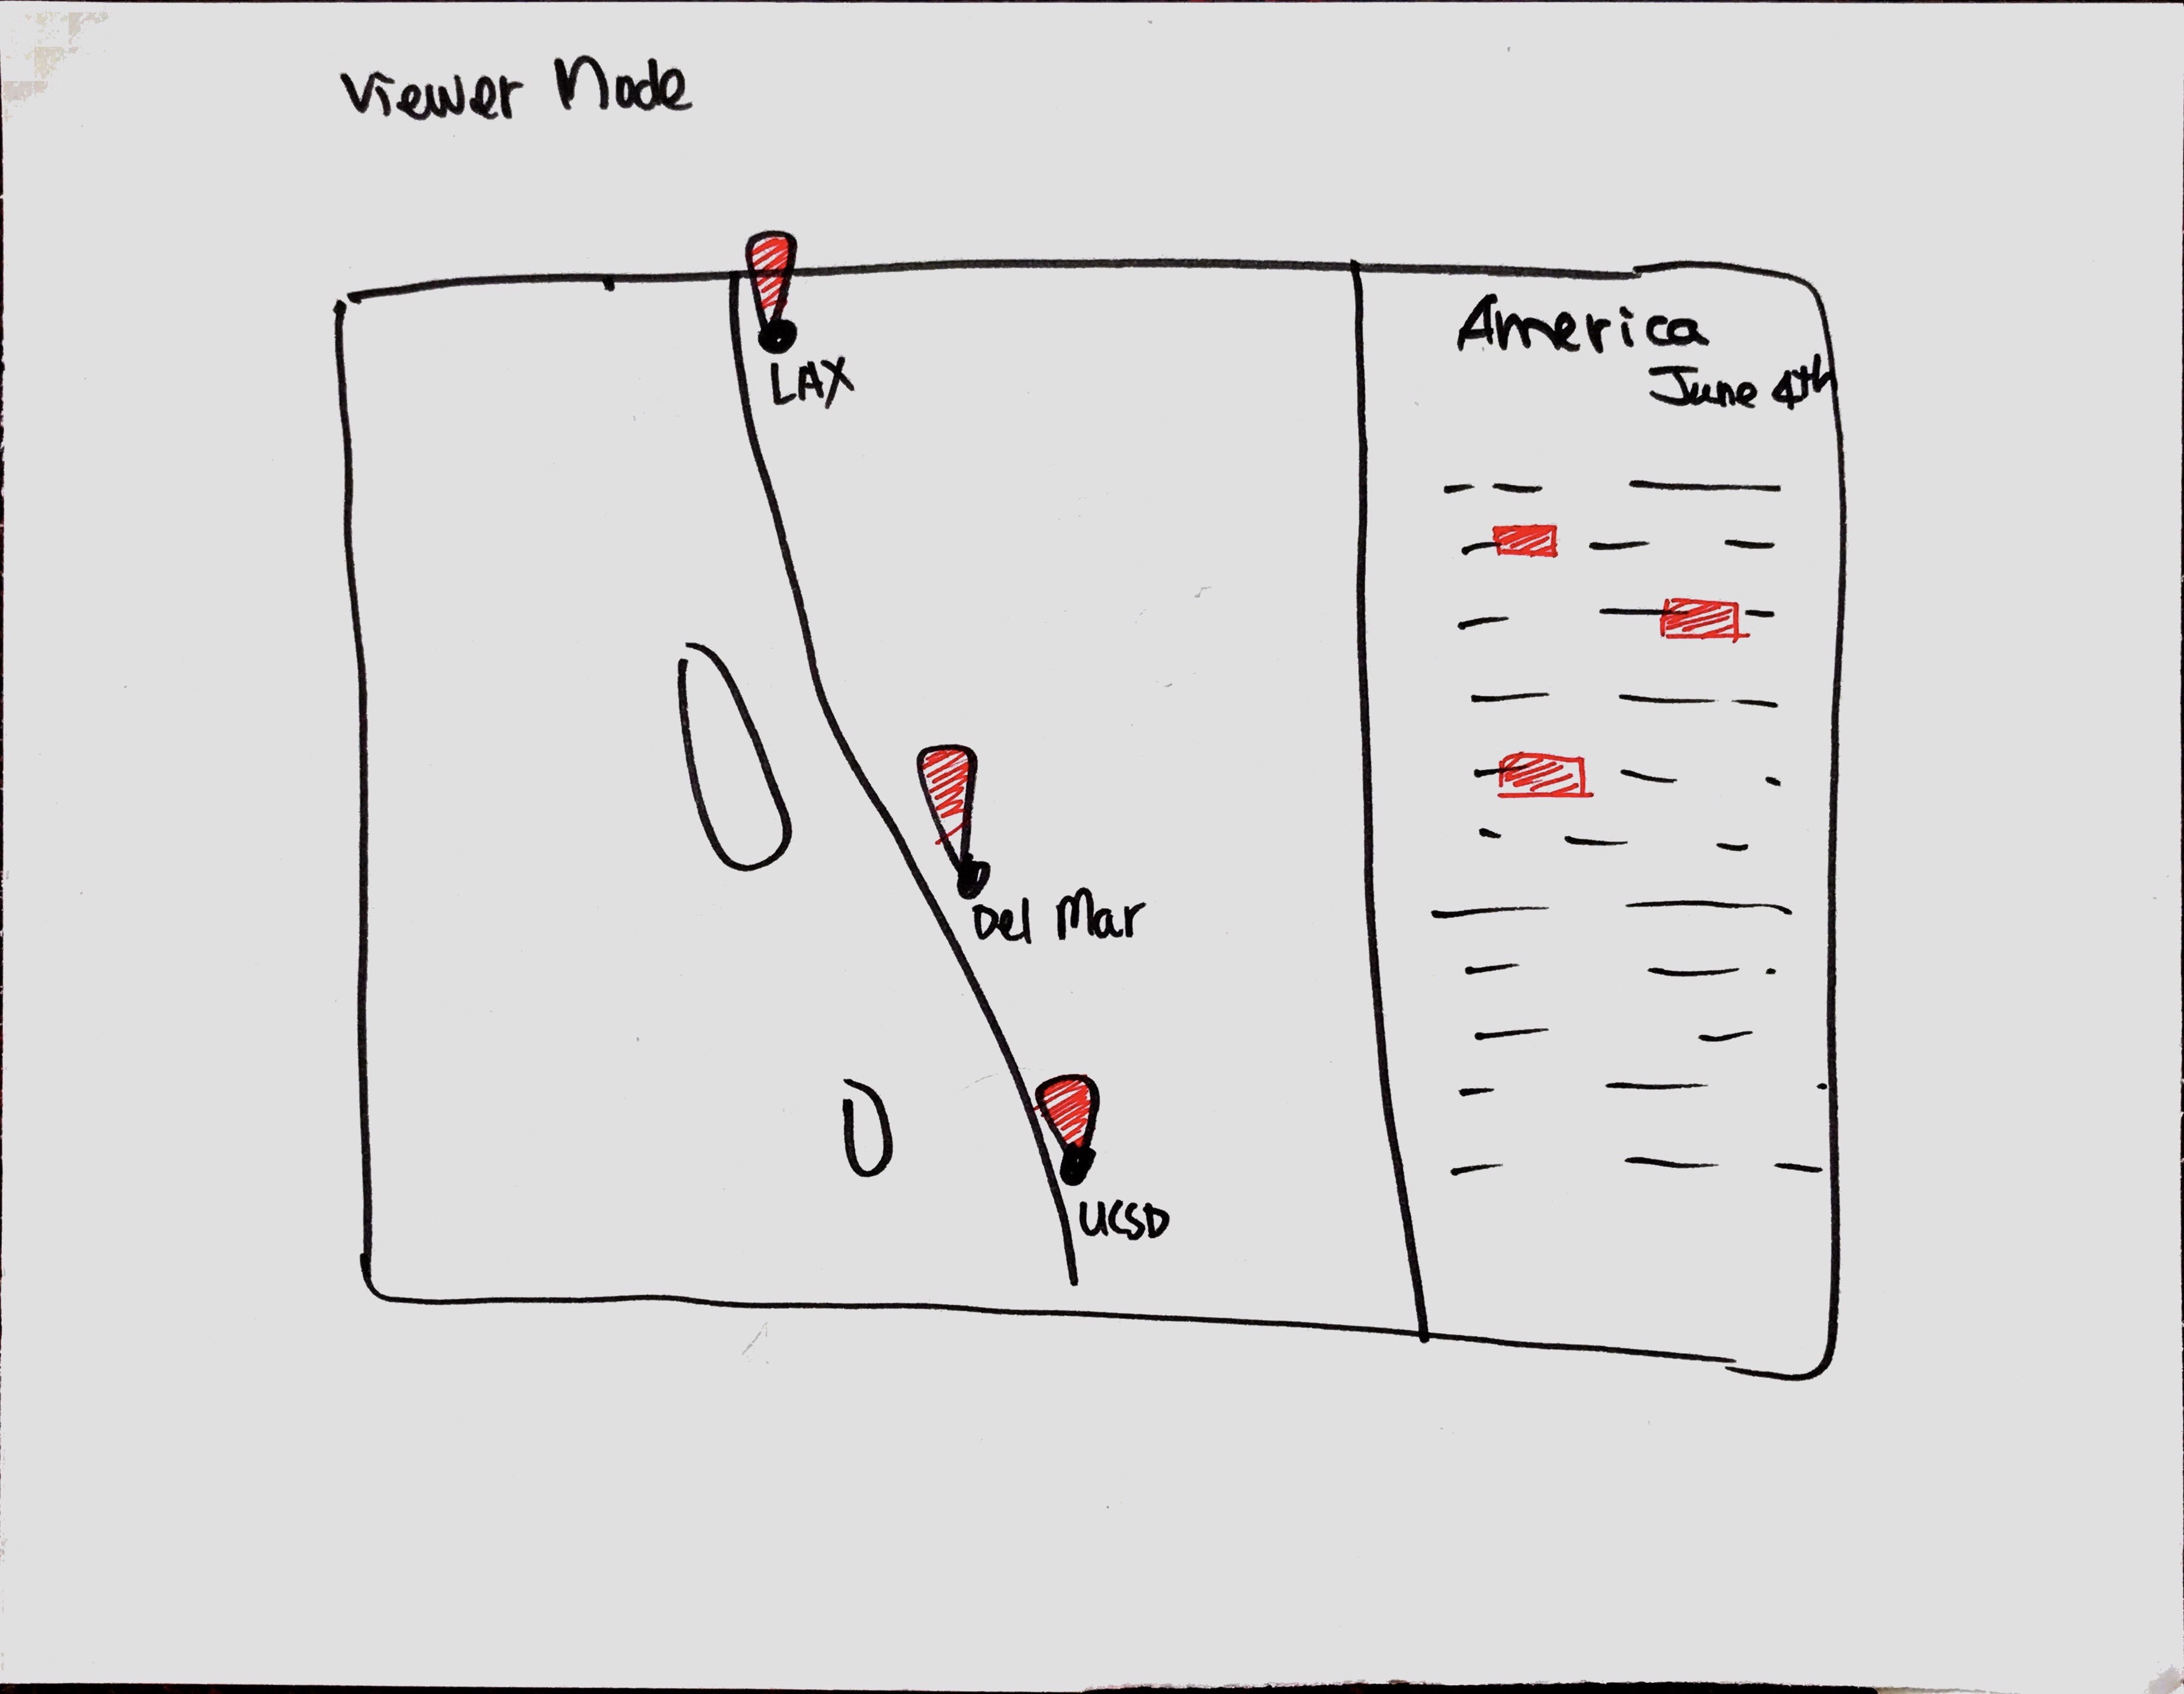 Viewer Mode
LAX
Del Mar
UCSD
America
June 4th